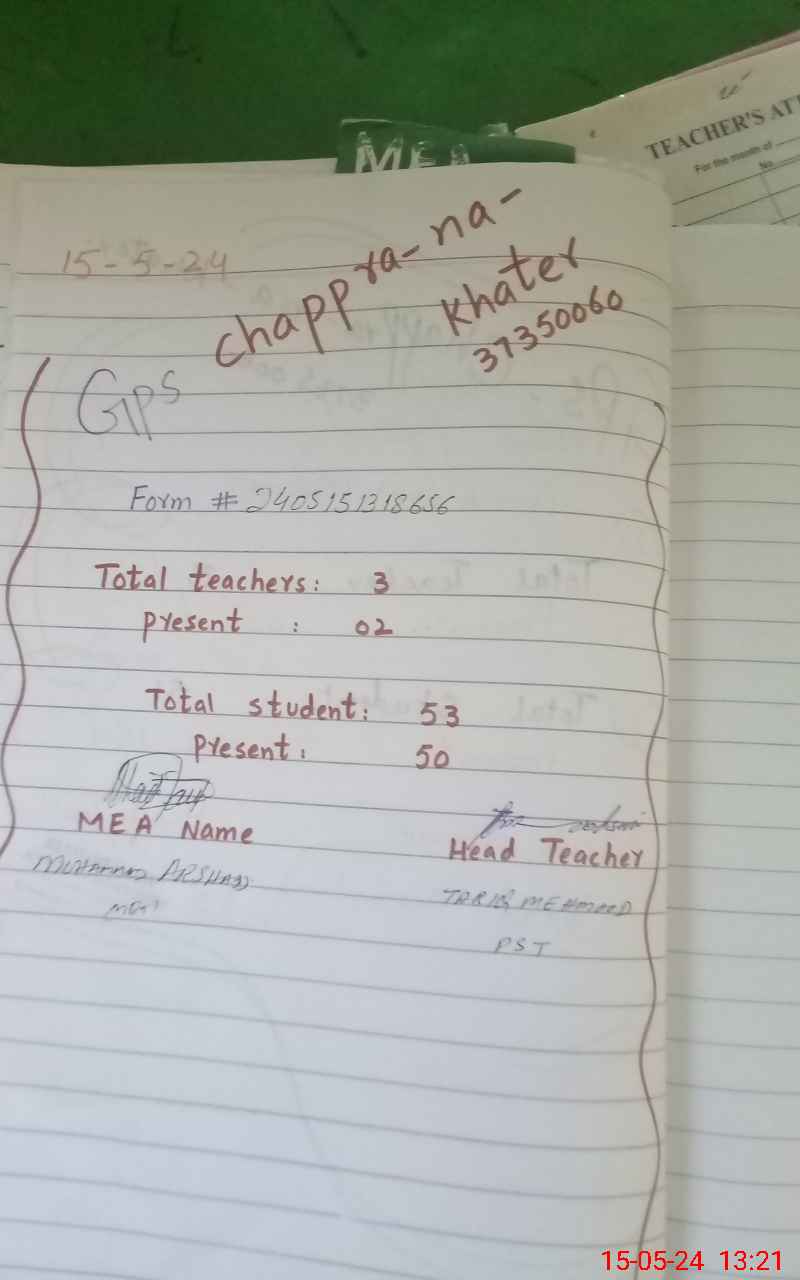 MEA
TEACHER'S ATT
For the month of
No.
15-5-24
chappra-na-
khater
37350060
GPS
Form # 2405151318656
Total teachers: 3
present : 02
Total student: 53
present: 50
MEA Name
Head Teacher
MUHAMMAD ARSHAD
TARIQ MEHMOOD
MEA
PST
15-05-24 13:21